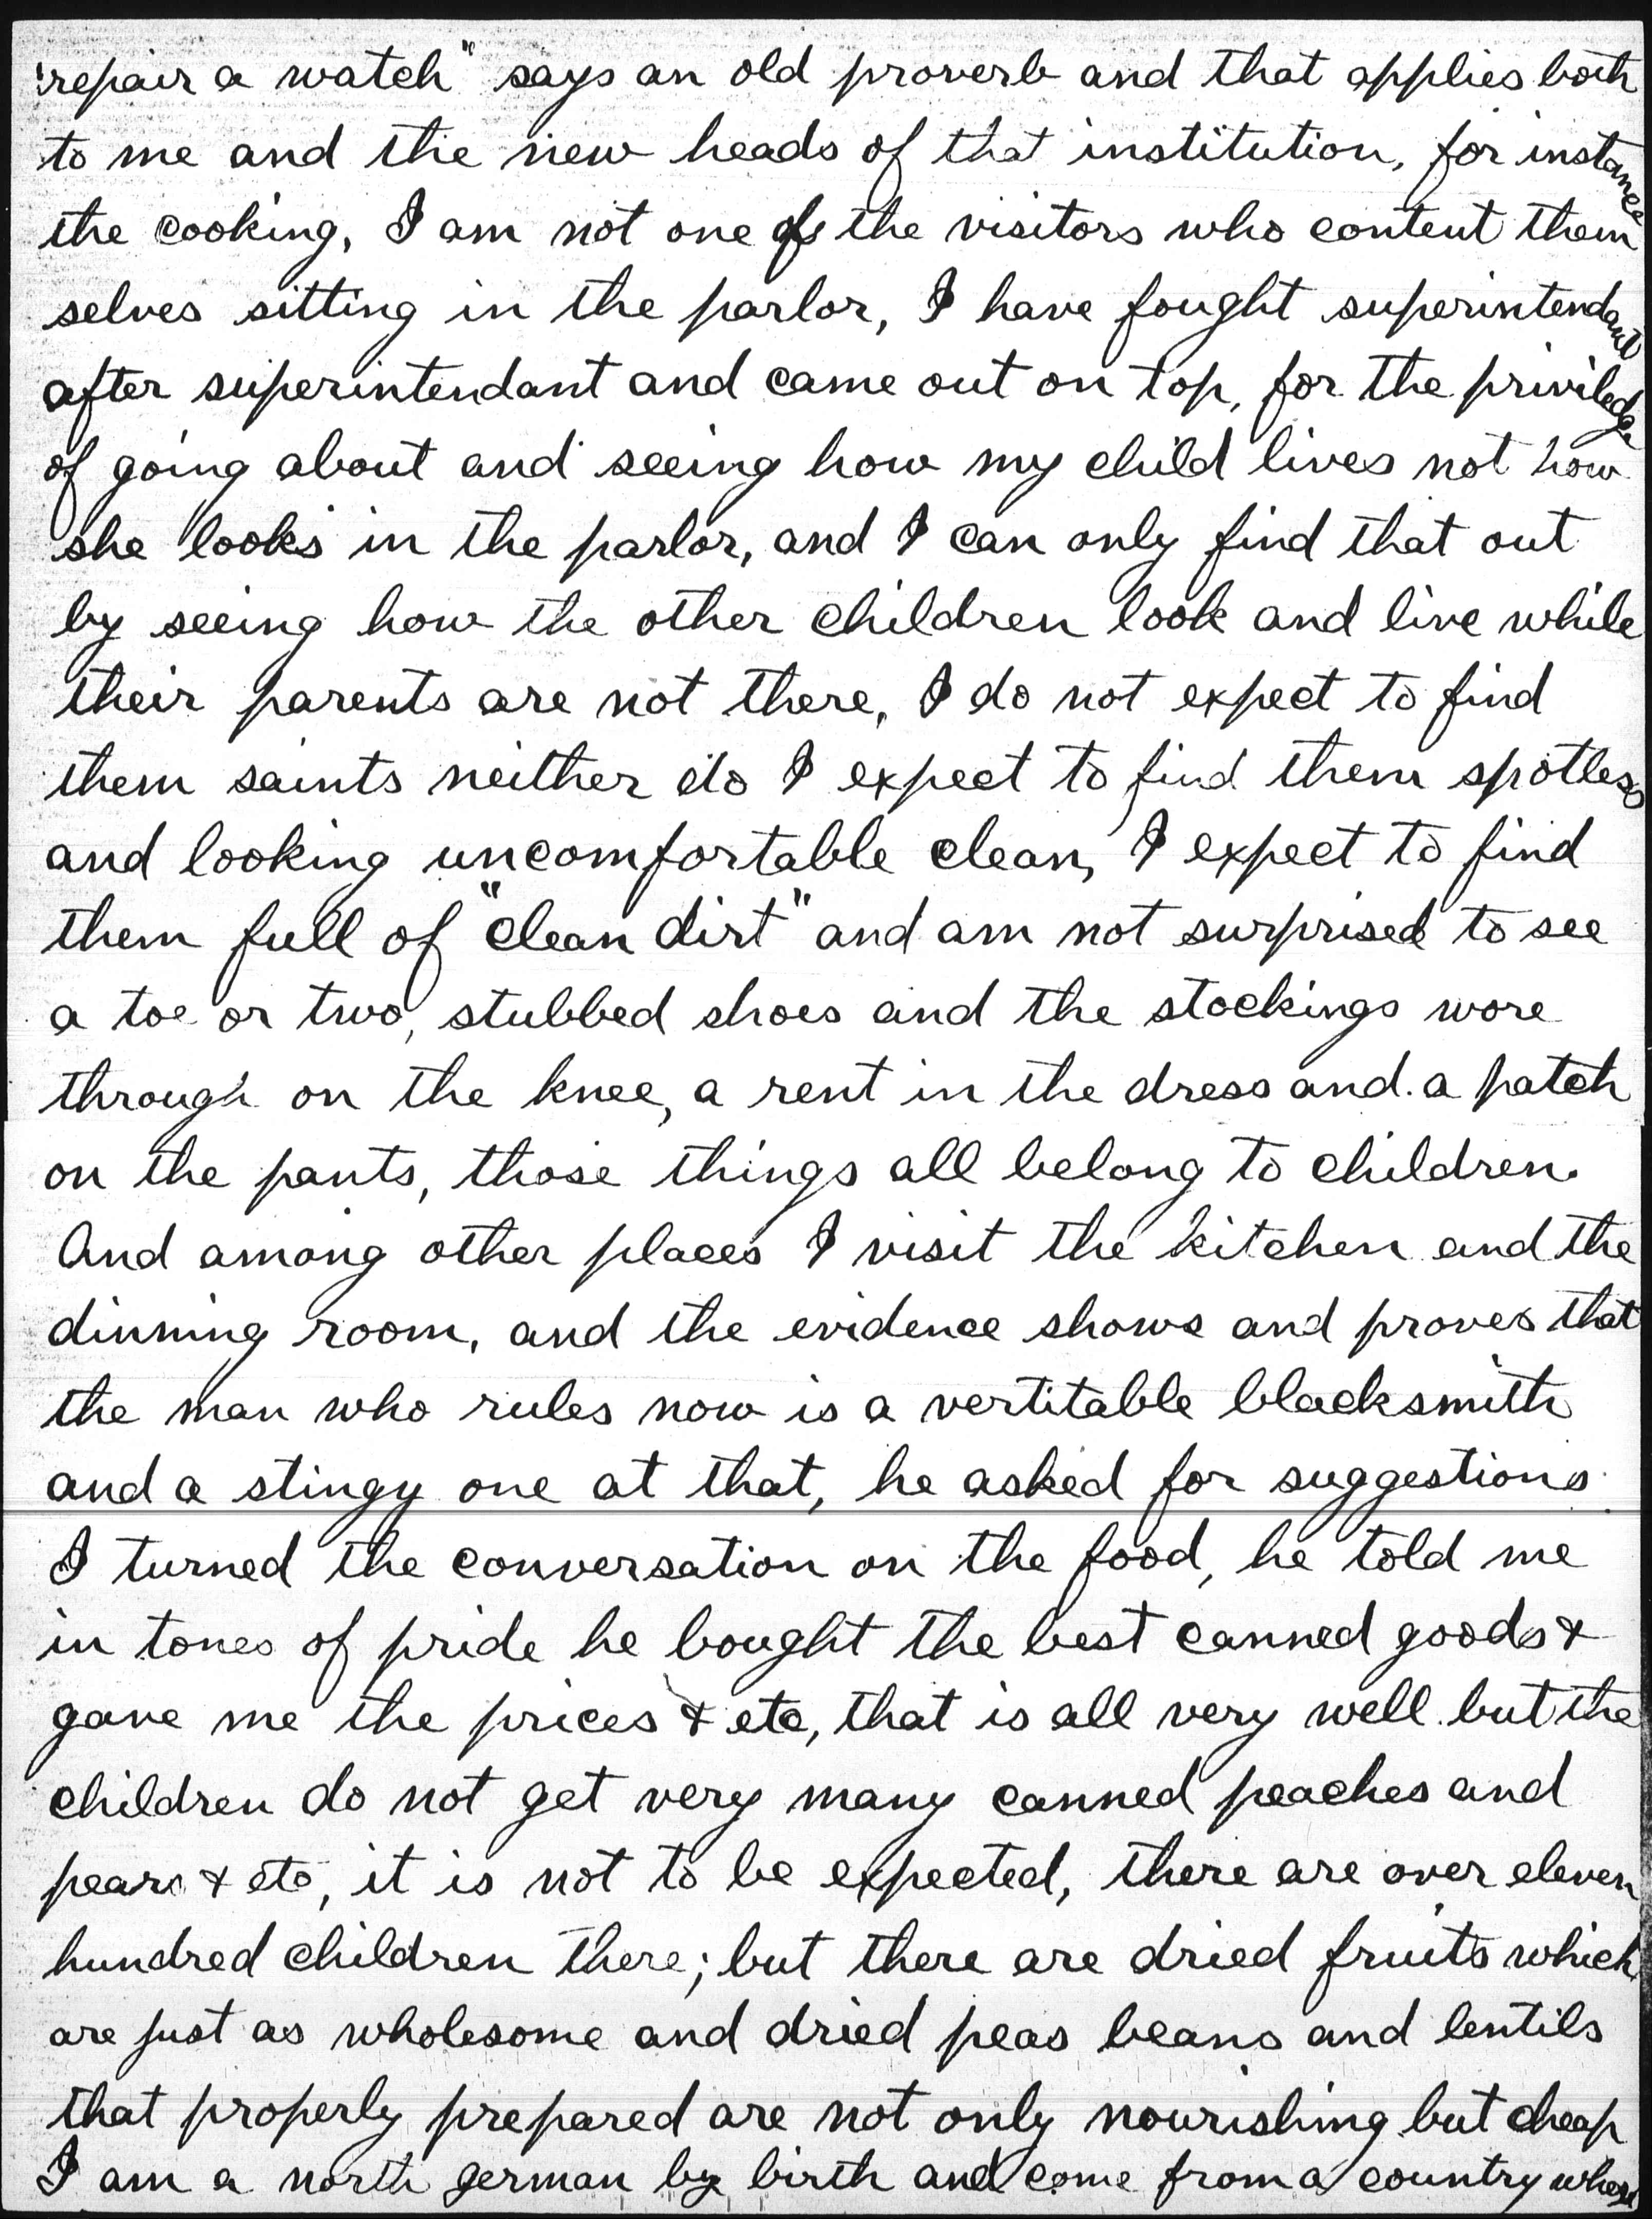 "repair a watch" says an old proverb and that applies both
to me and the new heads of that institution, for instance
the cooking, I am not one of the visitors who content them
selves sitting in the parlor, I have fought superintendant
after superintendant and came out on top, for the priviledge
of going about and seeing how my child lives not how
she looks in the parlor, and I can only find that out
by seeing how the other children look and live while
their parents are not there, I do not expect to find
them saints neither do I expect to find them spotless
and looking uncomfortable clean, I expect to find
them full of "clean dirt" and am not surprised to see
a toe or two, stubbed shoes and the stockings wore
through on the knee, a rent in the dress and a patch
on the pants, those things all belong to children.
And among other places I visit the kitchen and the
dinning room, and the evidence shows and proves that
the man who rules now is a vertitable blacksmith
and a stingy one at that, he asked for suggestions
I turned the conversation on the food, he told me
in tones of pride he bought the best canned goods &
gave me the prices & etc, that is all very well but the
children do not get very many canned peaches and
pears & etc, it is not to be expected, there are over eleven
hundred children there; but there are dried fruits which
are just as wholesome and dried peas beans and lentils
that properly prepared are not only nourishing but cheap
I am a north german by birth and come from a country where